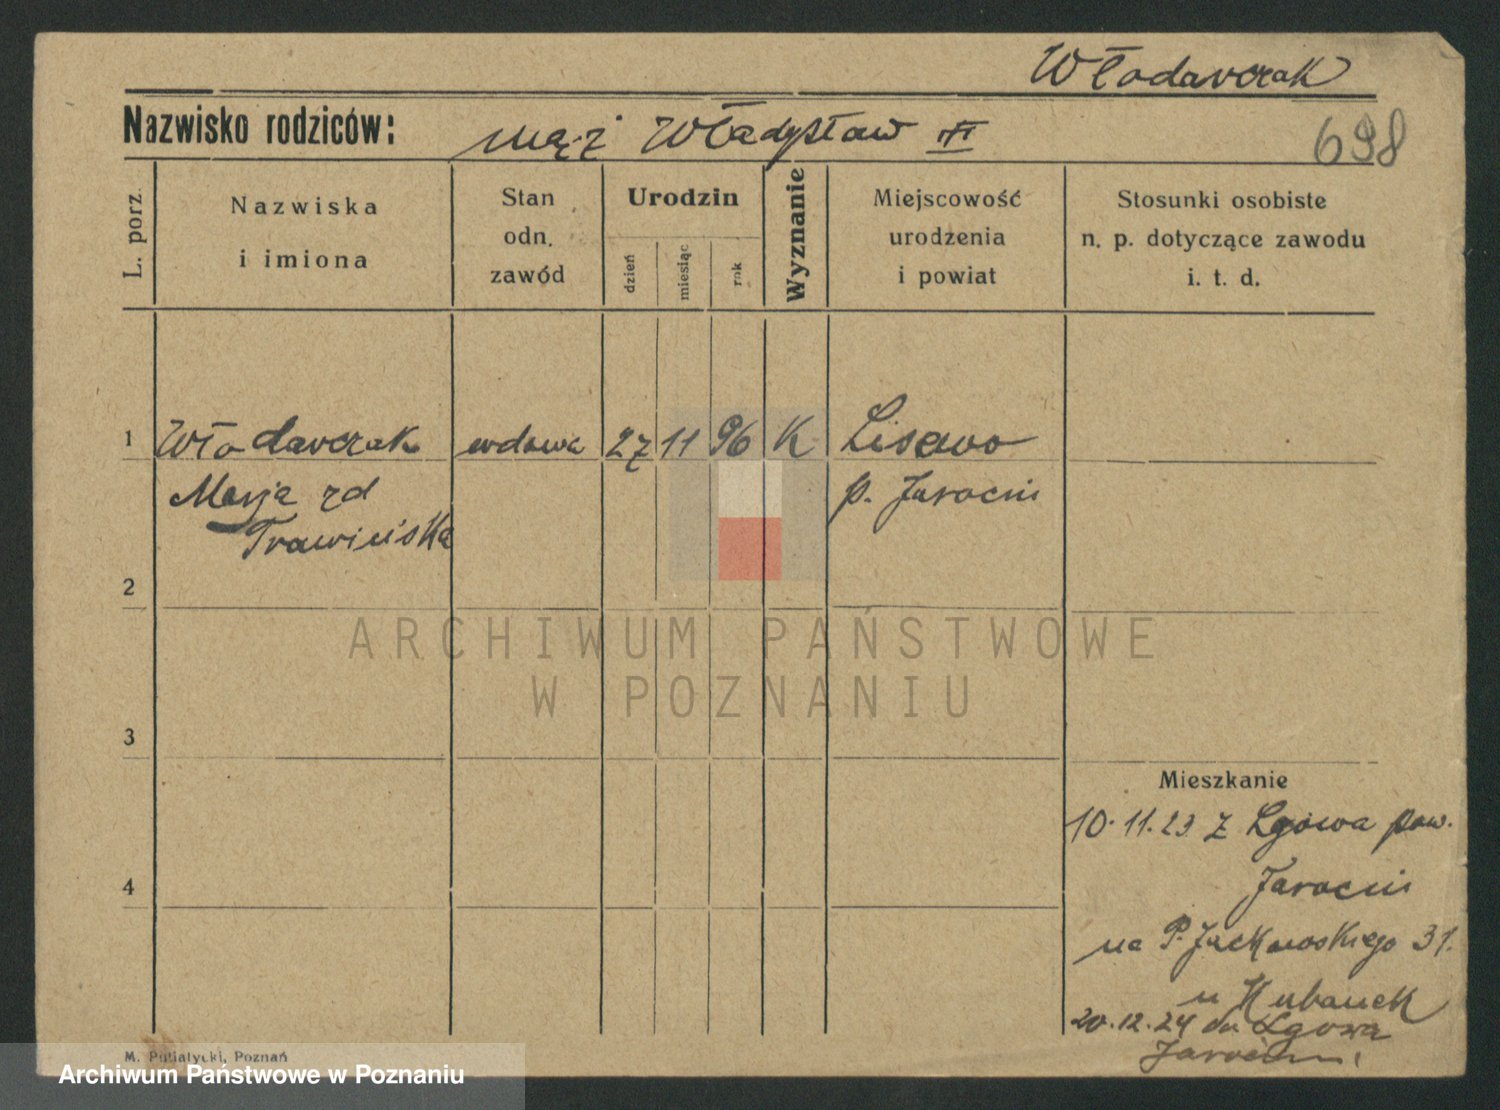 Włodarczak
Nazwisko rodziców: mąż Władysław
698
L. porz.
Nazwiska
i imiona
Stan
odn.
zawód
Urodzin
dzień
miesiąc
rok
Wyznanie
Miejscowość
urodzenia
i powiat
Stosunki osobiste
n. p. dotyczące zawodu
i. t. d.
1 Włodarczak wdowa 27 11 96 K Lisewo
Marja rd p. Jarocin
Trawińska
2
ARCHIWUM PAŃSTWOWE
W POZNANIU
3
Mieszkanie
10.11.23 z Lgowa pow.
4 Jarocin
na P. Jackowskiego 31.
u Kubanek
20.12.24 do Lgowa
Jarocin
M. Putiatycki, Poznań
Archiwum Państwowe w Poznaniu